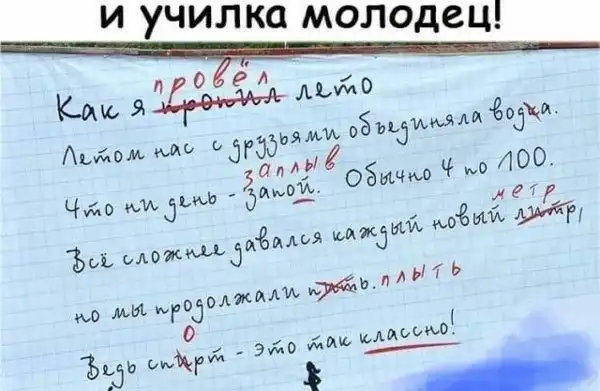 и училка молодец!
провёл
Как я пропил лето
Летом нас с друзьями объединяла водка.
заплыв
Что ни день - запой. Обычно 4 по 100.
метр
Всё сложнее давался каждый новый литр,
но мы продолжали пить. плыть
о
Ведь спирт - это так классно!